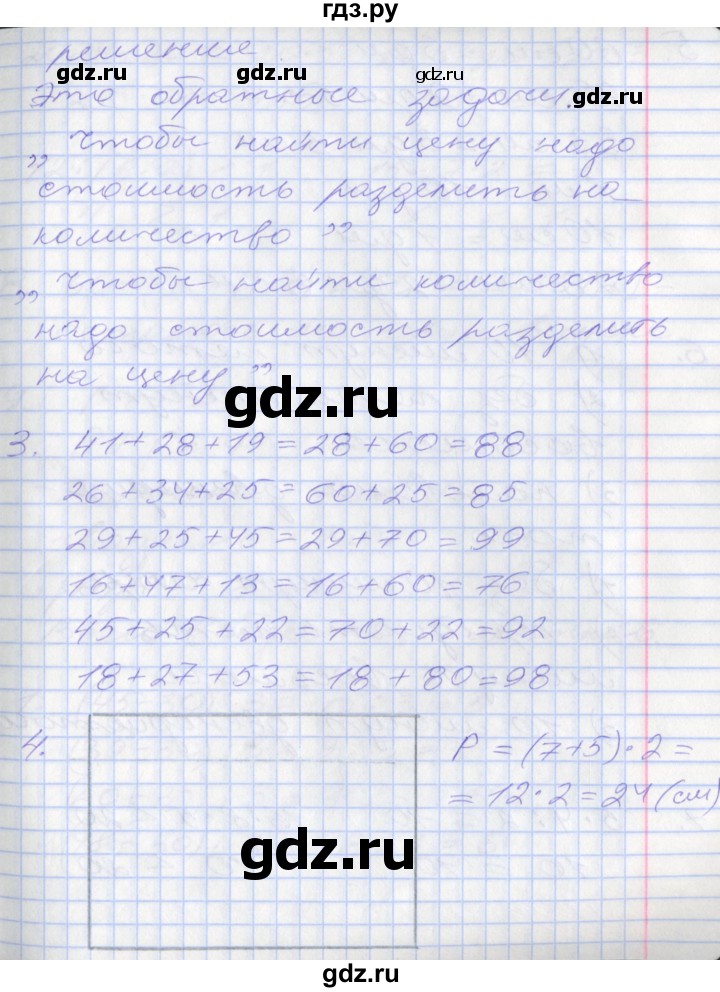 гдз.ру
решение
gdz.ru gdz.ru gdz.ru
Это обратные задачи.
gdz.ru
„Чтобы найти цену надо
стоимость разделить на
количество”
„Чтобы найти количество
надо стоимость разделить
на цену”
gdz.ru
3. 41+28+19=28+60=88
26+34+25=60+25=85
29+25+45=29+70=99
16+47+13=16+60=76
45+25+22=70+22=92
18+27+53=18+80=98
gdz.ru gdz.ru
4. P=(7+5)·2=
=12·2=24(см)
gdz.ru gdz.ru
gdz.ru
gdz.ru